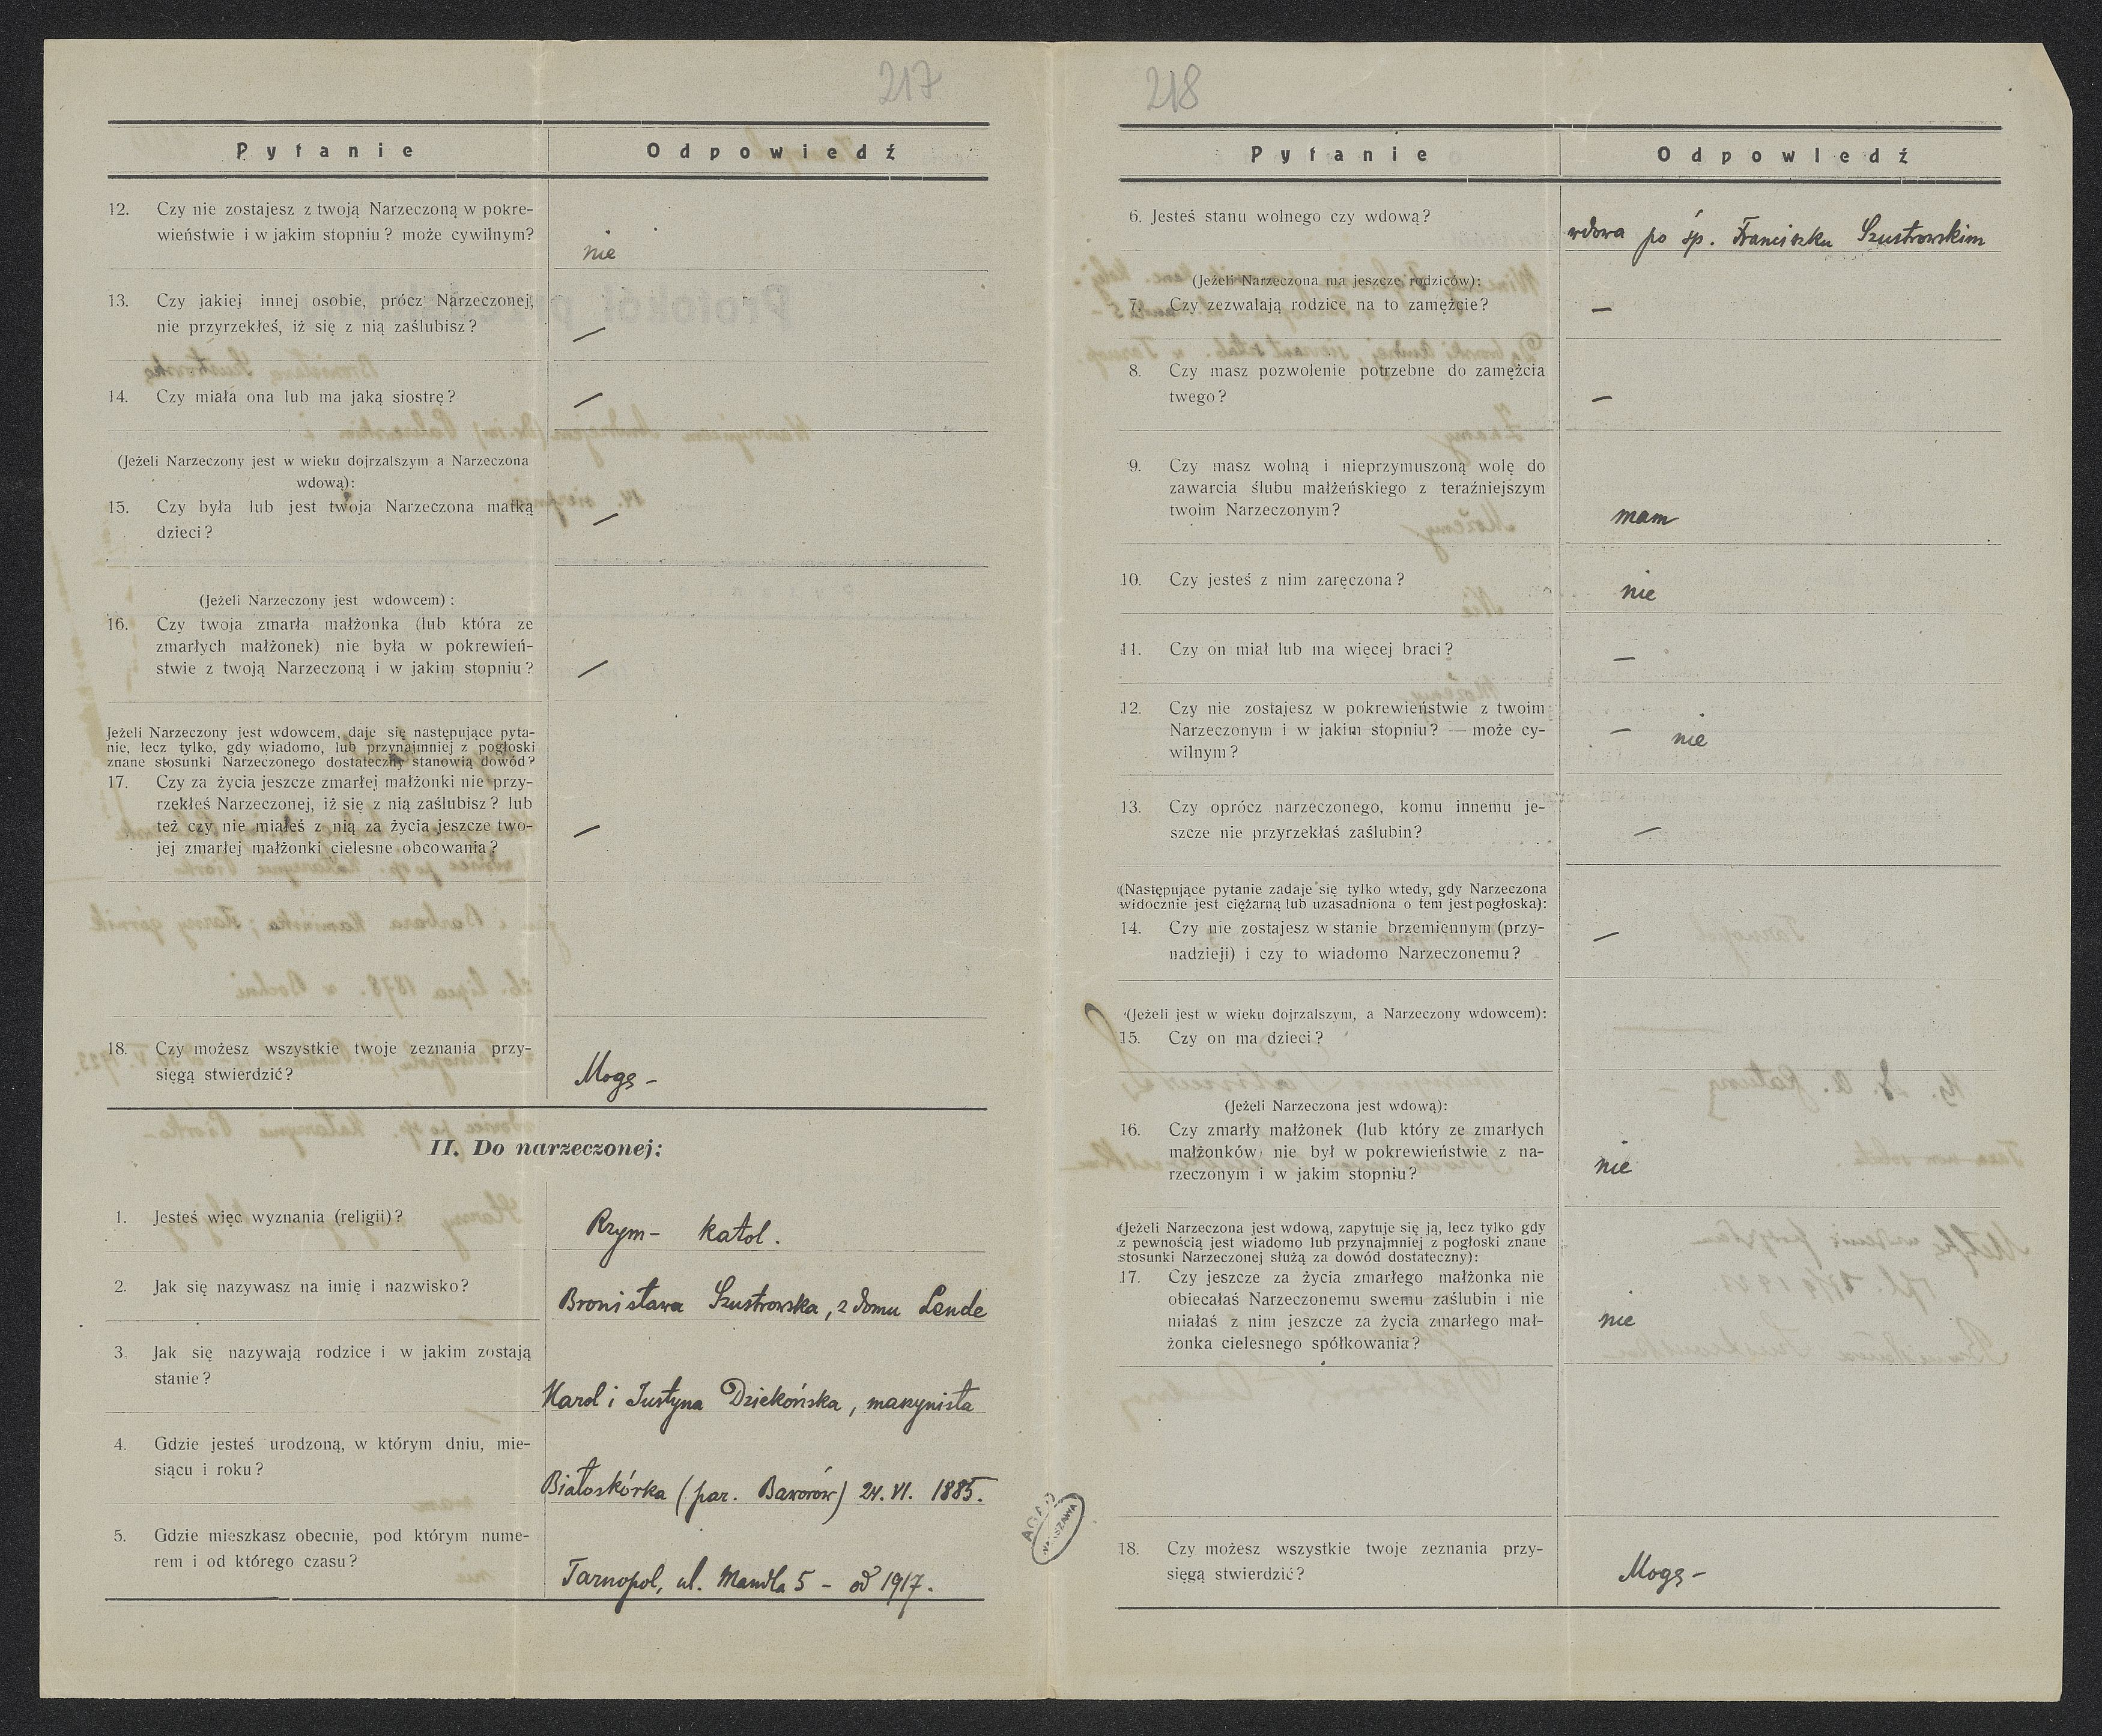 217
Pytanie Odpowiedź
12. Czy nie zostajesz z twoją Narzeczoną w pokre-
wieństwie i w jakim stopniu? może cywilnym?
nie
13. Czy jakiej innej osobie, prócz Narzeczonej,
nie przyrzekłeś, iż się z nią zaślubisz?
—
14. Czy miała ona lub ma jaką siostrę?
—
(Jeżeli Narzeczony jest w wieku dojrzalszym a Narzeczona
wdową):
15. Czy była lub jest twoja Narzeczona matką
dzieci?
—
(Jeżeli Narzeczony jest wdowcem):
16. Czy twoja zmarła małżonka (lub która ze
zmarłych małżonek) nie była w pokrewień-
stwie z twoją Narzeczoną i w jakim stopniu?
—
Jeżeli Narzeczony jest wdowcem, daje się następujące pyta-
nie, lecz tylko, gdy wiadomo, lub przynajmniej z pogłoski
znane stosunki Narzeczonego dostateczny stanowią dowód?
17. Czy za życia jeszcze zmarłej małżonki nie przy-
rzekłeś Narzeczonej, iż się z nią zaślubisz? lub
też czy nie miałeś z nią za życia jeszcze two-
jej zmarłej małżonki cielesne obcowania?
—
18. Czy możesz wszystkie twoje zeznania przy-
sięgą stwierdzić?
Mogę —
II. Do narzeczonej:
1. Jesteś więc wyznania (religii)?
Rzym- katol.
2. Jak się nazywasz na imię i nazwisko?
Bronisława Szustrowska, z domu Lende
3. Jak się nazywają rodzice i w jakim zostają
stanie?
Karol i Justyna Dziekońska, maszynista
4. Gdzie jesteś urodzoną, w którym dniu, mie-
siącu i roku?
Białoskórka (par. Baworów) 24. VI. 1885.
5. Gdzie mieszkasz obecnie, pod którym nume-
rem i od którego czasu?
Tarnopol, ul. Mandla 5 – od 1917.
218
Pytanie Odpowiedź
6. Jesteś stanu wolnego czy wdową?
wdowa po śp. Franciszku Szustrowskim
(Jeżeli Narzeczona ma jeszcze rodziców):
7. Czy zezwalają rodzice na to zamęźcie?
—
8. Czy masz pozwolenie potrzebne do zamęźcia
twego?
—
9. Czy masz wolną i nieprzymuszoną wolę do
zawarcia ślubu małżeńskiego z teraźniejszym
twoim Narzeczonym?
mam
10. Czy jesteś z nim zaręczona?
nie
11. Czy on miał lub ma więcej braci?
—
12. Czy nie zostajesz w pokrewieństwie z twoim
Narzeczonym i w jakim stopniu? — może cy-
wilnym?
— nie
13. Czy oprócz narzeczonego, komu innemu je-
szcze nie przyrzekłaś zaślubin?
—
(Następujące pytanie zadaje się tylko wtedy, gdy Narzeczona
widocznie jest ciężarną lub uzasadniona o tem jest pogłoska):
14. Czy nie zostajesz w stanie brzemiennym (przy-
nadzieji) i czy to wiadomo Narzeczonemu?
—
(Jeżeli jest w wieku dojrzalszym, a Narzeczony wdowcem):
15. Czy on ma dzieci?
(Jeżeli Narzeczona jest wdową):
16. Czy zmarły małżonek (lub który ze zmarłych
małżonków) nie był w pokrewieństwie z na-
rzeczonym i w jakim stopniu?
nie
(Jeżeli Narzeczona jest wdową, zapytuje się ją, lecz tylko gdy
z pewnością jest wiadomo lub przynajmniej z pogłoski znane
stosunki Narzeczonej służą za dowód dostateczny):
17. Czy jeszcze za życia zmarłego małżonka nie
obiecałaś Narzeczonemu swemu zaślubin i nie
miałaś z nim jeszcze za życia zmarłego mał-
żonka cielesnego spółkowania?
nie
18. Czy możesz wszystkie twoje zeznania przy-
sięgą stwierdzić?
Mogę —
AGAD
WARSZAWA